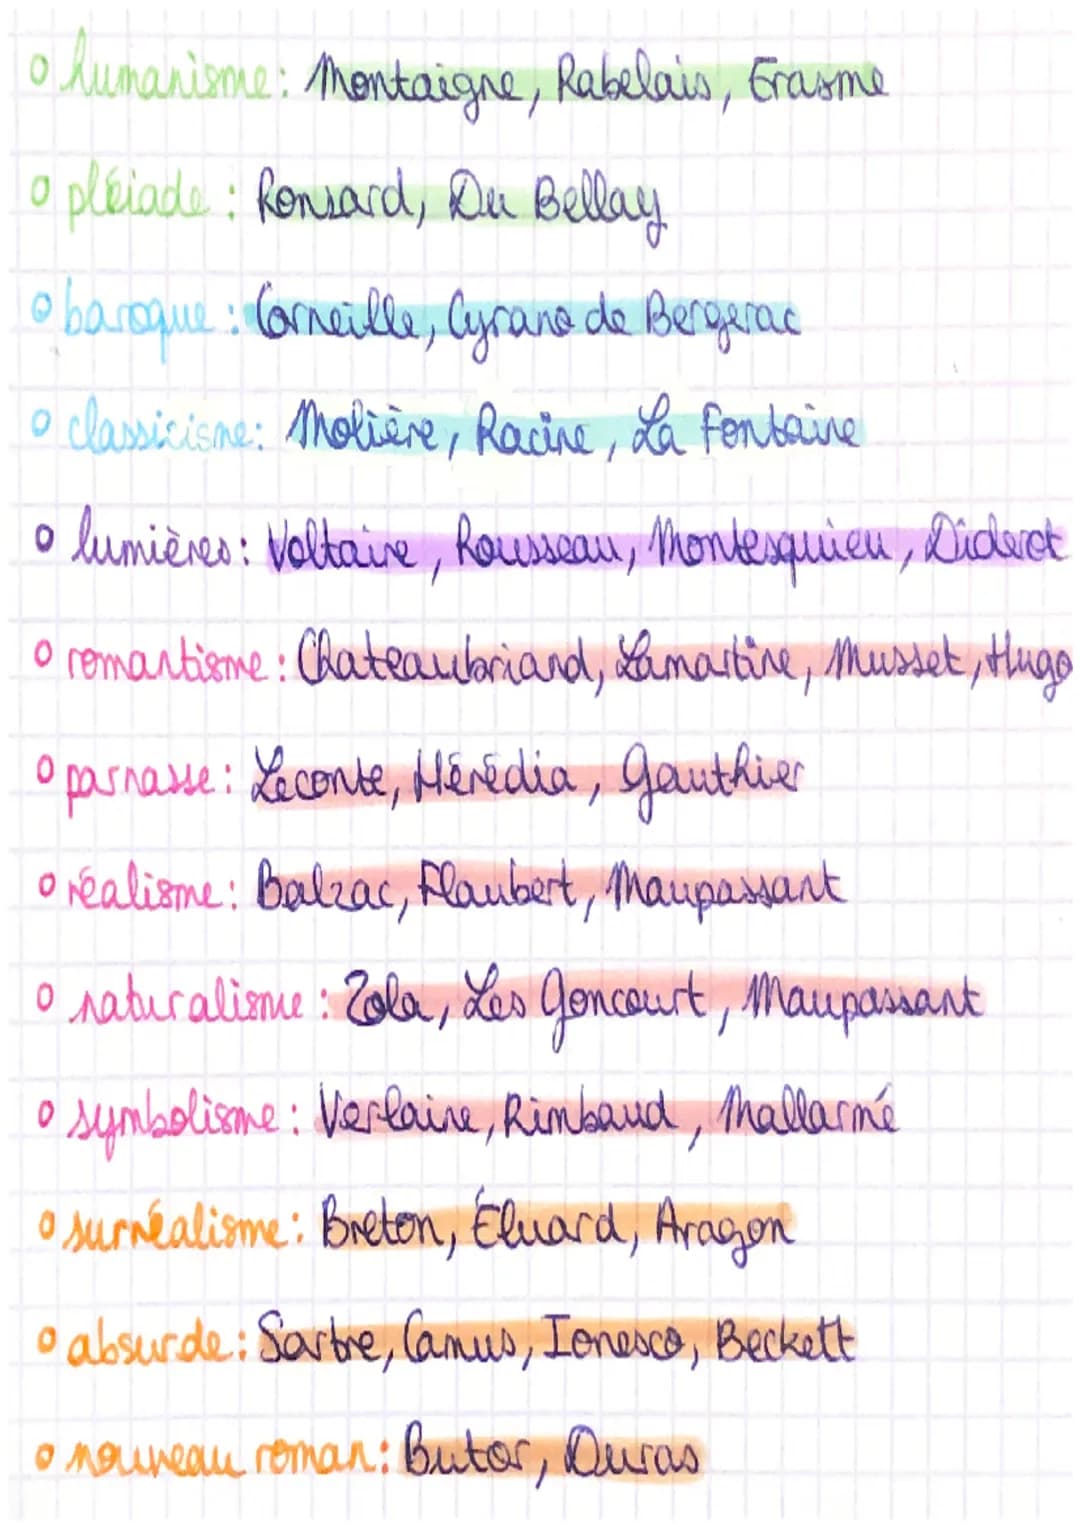 humanisme: Montaigne, Rabelais, Erasme
pléiade: Ronsard, Du Bellay
baroque: Corneille, Cyrano de Bergerac
classicisme: Molière, Racine, La Fontaine
lumières: Voltaire, Rousseau, Montesquieu, Diderot
romantisme: Chateaubriand, Lamartine, Musset, Hugo
parnasse: Leconte, Hérédia, Gauthier
réalisme: Balzac, Flaubert, Maupassant
naturalisme: Zola, Les Goncourt, Maupassant
symbolisme: Verlaine, Rimbaud, Mallarmé
surréalisme: Breton, Éluard, Aragon
absurde: Sartre, Camus, Ionesco, Beckett
nouveau roman: Butor, Duras